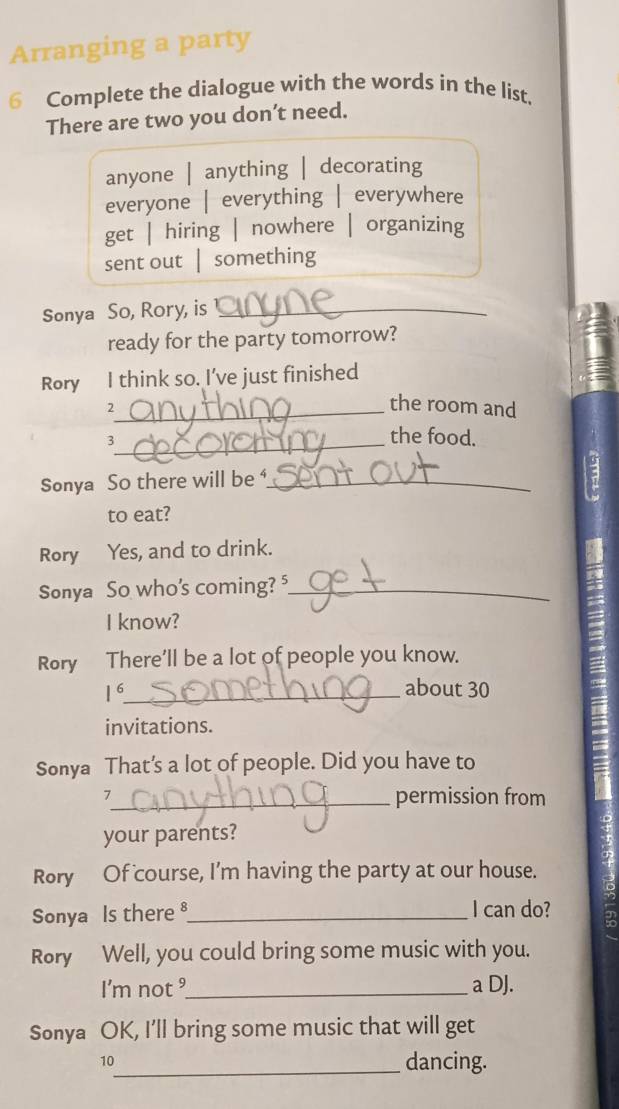 Arranging a party
6 Complete the dialogue with the words in the list.
There are two you don't need.
anyone | anything | decorating
everyone | everything | everywhere
get | hiring | nowhere | organizing
sent out | something
Sonya So, Rory, is ¹ anyne
ready for the party tomorrow?
Rory I think so. I've just finished
² anything the room and
³ decorating the food.
Sonya So there will be ⁴ sent out
to eat?
Rory Yes, and to drink.
Sonya So who's coming? ⁵ get
I know?
Rory There'll be a lot of people you know.
I ⁶ something about 30
invitations.
Sonya That's a lot of people. Did you have to
⁷ anything permission from
your parents?
Rory Of course, I'm having the party at our house.
Sonya Is there ⁸ I can do?
Rory Well, you could bring some music with you.
I'm not ⁹ a DJ.
Sonya OK, I'll bring some music that will get
10 dancing.
7 891360 491446